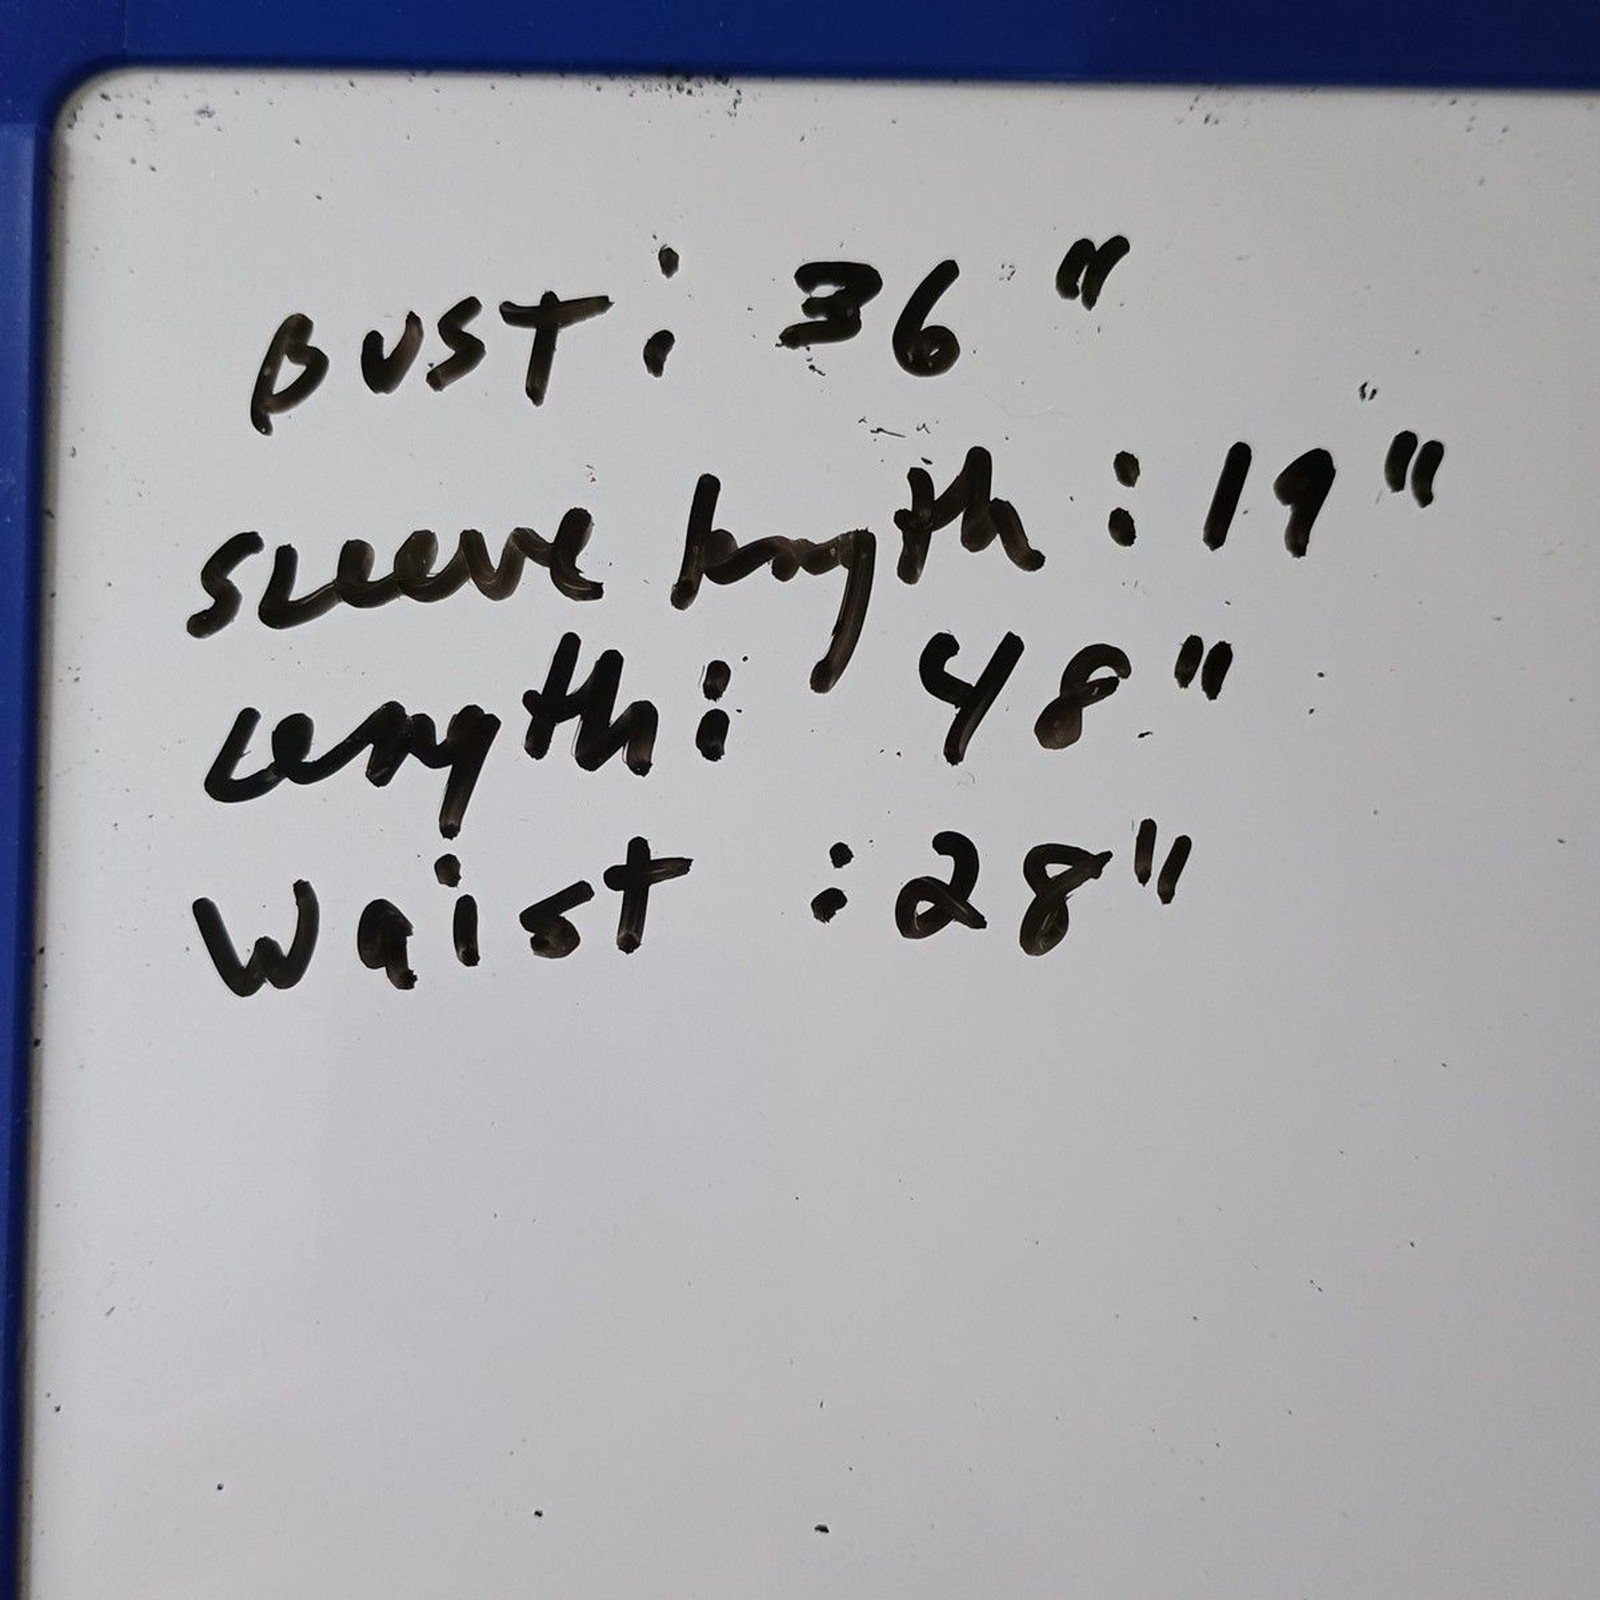 BUST: 36"
Sleeve length: 19"
Length: 48"
Waist: 28"